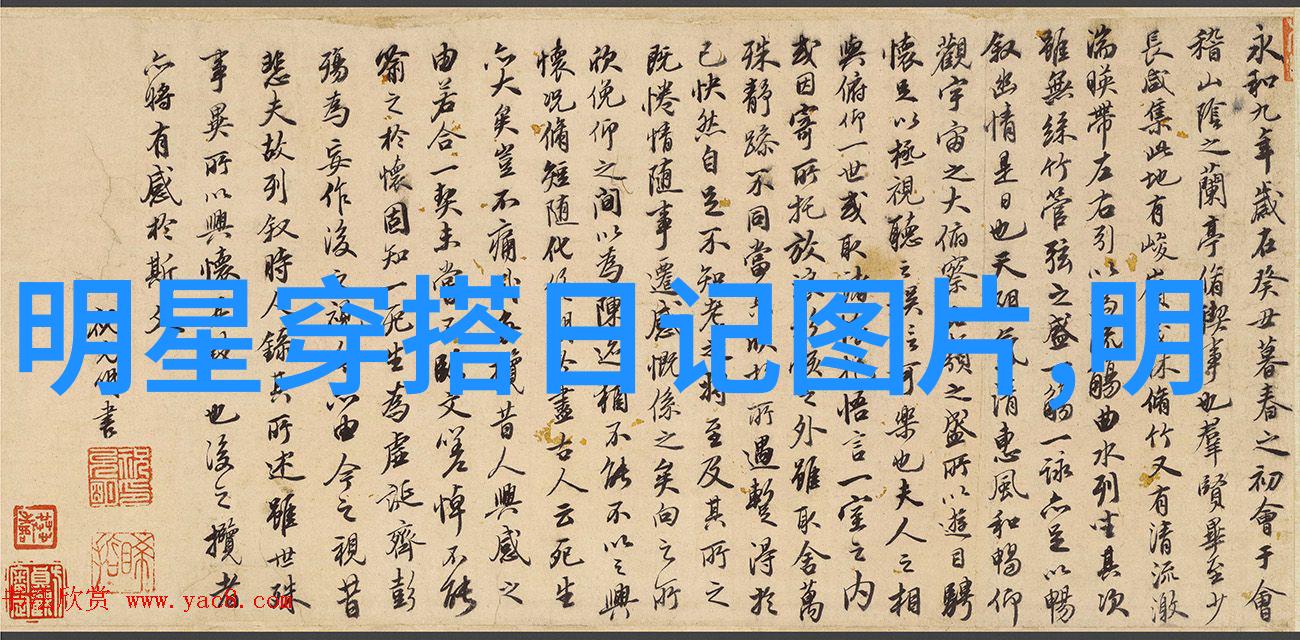 永和九年歲在癸丑暮春之初會于會
稽山陰之蘭亭脩禊事也羣賢畢至少
長咸集此地有峻林脩竹又有清流激
湍暎帶左右引以流觴曲水列坐其次
雖無絲竹管弦之盛一觴一詠亦足以暢
叙幽情是日也天朗氣清惠風和暢仰
觀宇宙之大俯察類之盛所以遊目騁
懷足以極視聽之可樂也夫人之相
與俯仰一世或取諸悟言一室之內
或因寄所托放浪之外雖取舍萬
殊靜躁不同當於所遇暫得於
已快然自足不知老之將至及其所之
既惓情随事遷感慨係之矣向之所
欣俛仰之間以為陳迹猶不能不以之興
懷况脩短随化期於盡古人云死生
亦大矣豈不痛攬昔人興感之
由若合一契未嘗不臨文嗟悼不能
喻之於懷固知一死生為虛誕齊彭
殤為妄作後之視由今之視昔
悲夫故列叙時人錄其所述雖世殊
事異所以興懷也後之攬者
亦將有感於斯文
書
明星穿搭日记图片,明
欣赏 www.yac8.com